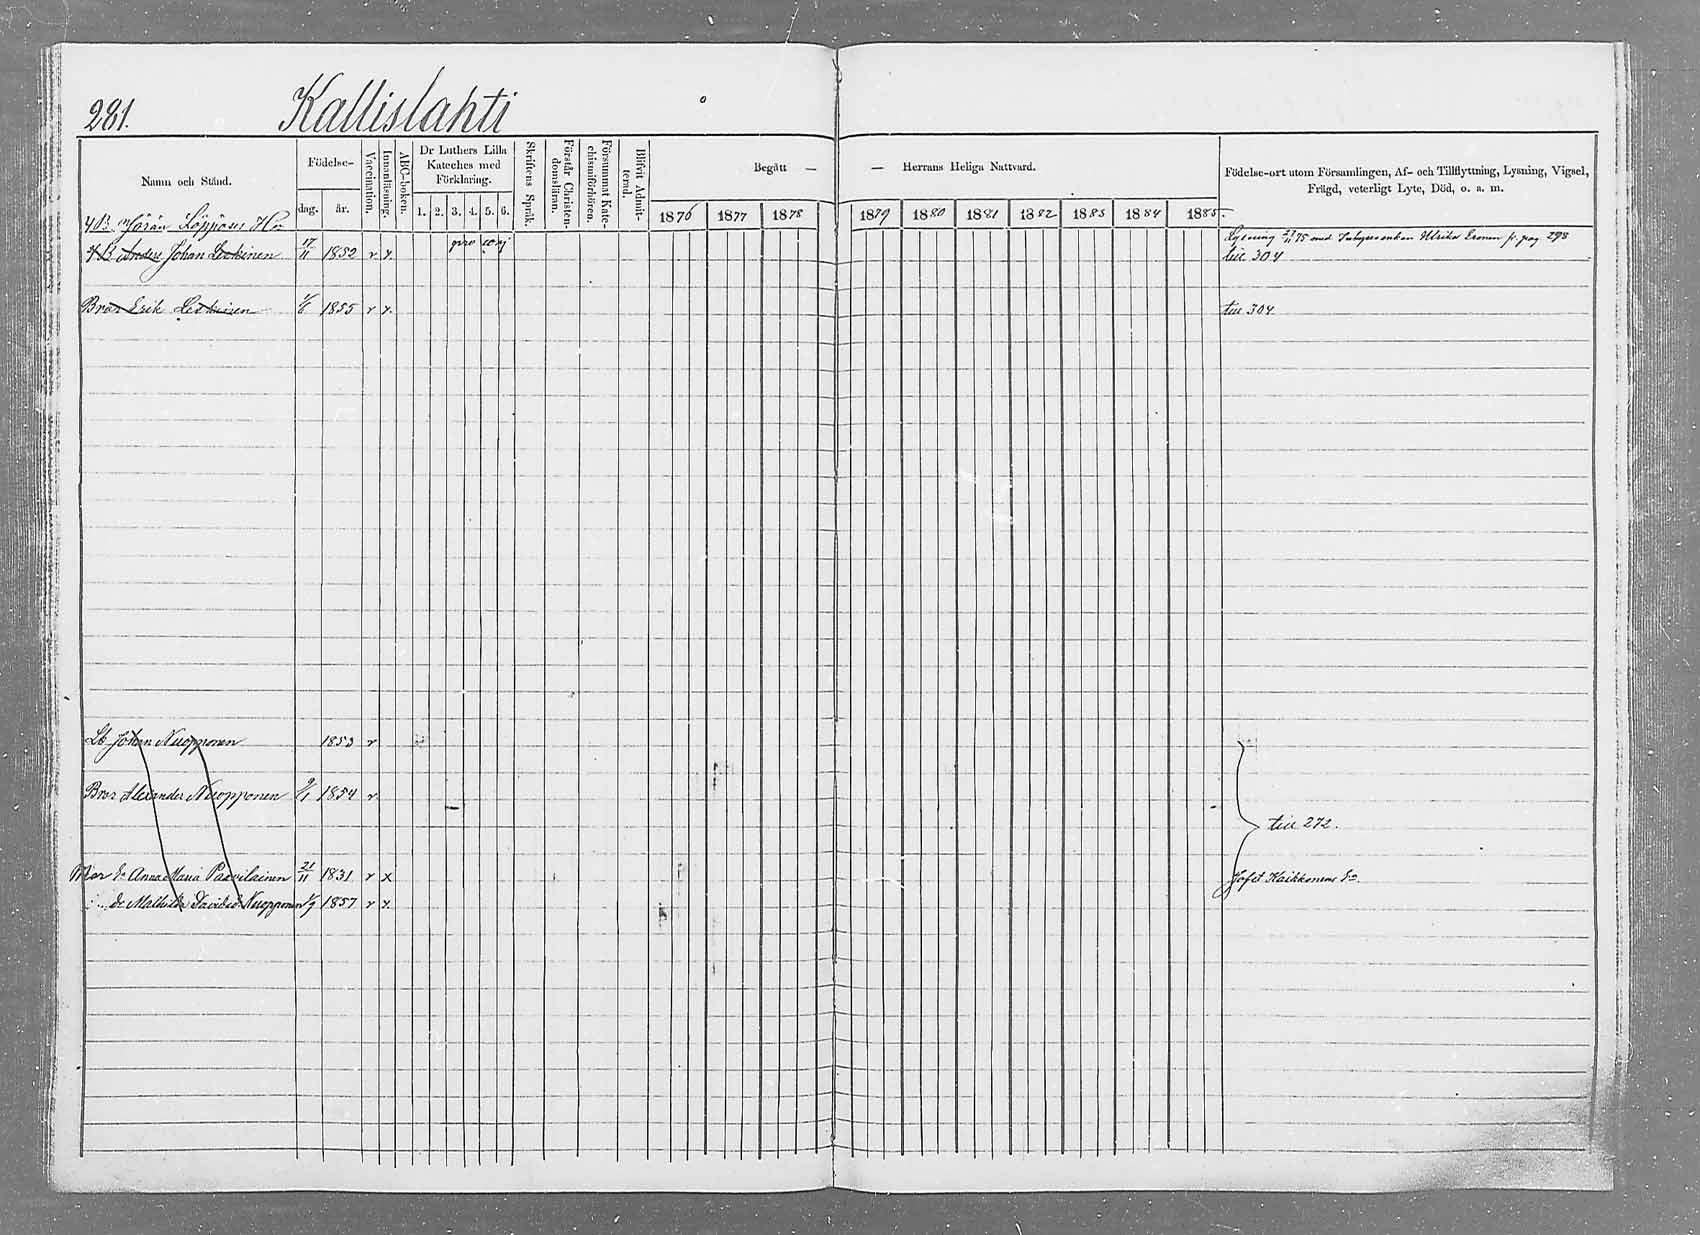 281. Kallislahti
Namn och Stånd.
Födelse-
dag. år.
Vaccination.
Innanläsning.
ABC-boken.
Dr Luthers Lilla Kateches med Förklaring.
1. 2. 3. 4. 5. 6.
Skriftens Språk.
Förstår Christendomsläran.
Försummat Katechismiförhören.
Blifvit Admitterad.
Begått — — Herrans Heliga Nattvard.
1876 1877 1878 1879 1880 1881 1882 1883 1884 1885.
Födelse-ort utom Församlingen, Af- och Tillflyttning, Lysning, Vigsel,
Frägd, veterligt Lyte, Död, o. a. m.
Göran Löppöus
Lysning 75 med Ulrika fr. pag 298
Anders Johan Leskinen 17/11 1852 v x. till 304
Bror Erik Leskinen 1/6 1855 v x. till 304
Johan Nuopponen 1853 v
Bror Alexander Nuopponen 9/1 1854 v
till 272.
Mor Anna Maria Paavilainen 21/11 1831 v x Kaikkonens
dr Mathilda Davidsdr Nuopponen 1/9 1857 v x.